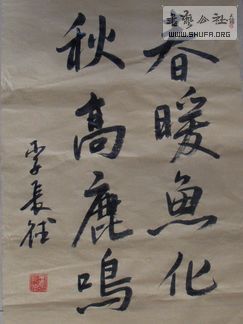 春暖魚化
秋高鹿鳴
李長征
書法公社
WWW.SHUFA.ORG